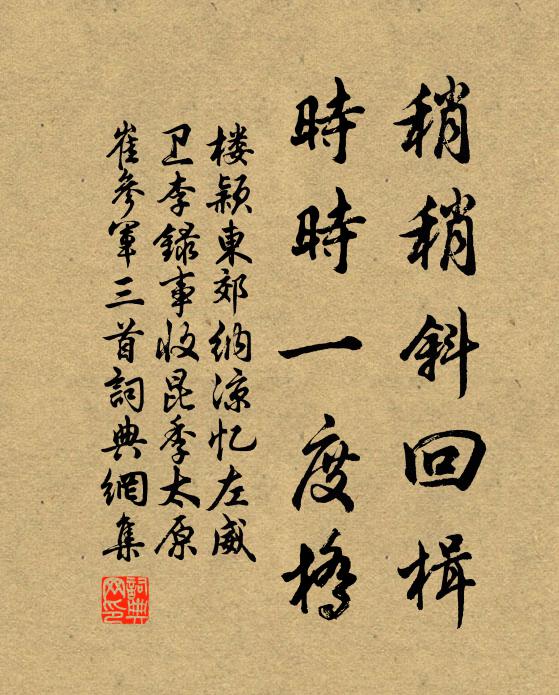 稍稍斜回楫
時時一度橋
楼颖東郊纳凉忆左威
卫李録事收昆季太原
崔参軍三首詞典網集
詞典網印